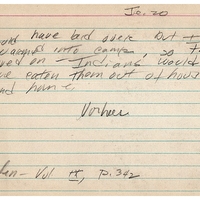 Je. 20
have laid over. But
into camp, so
on Indians would
eaten them out of house
and home.
Vorhees
Vol IX, p. 342